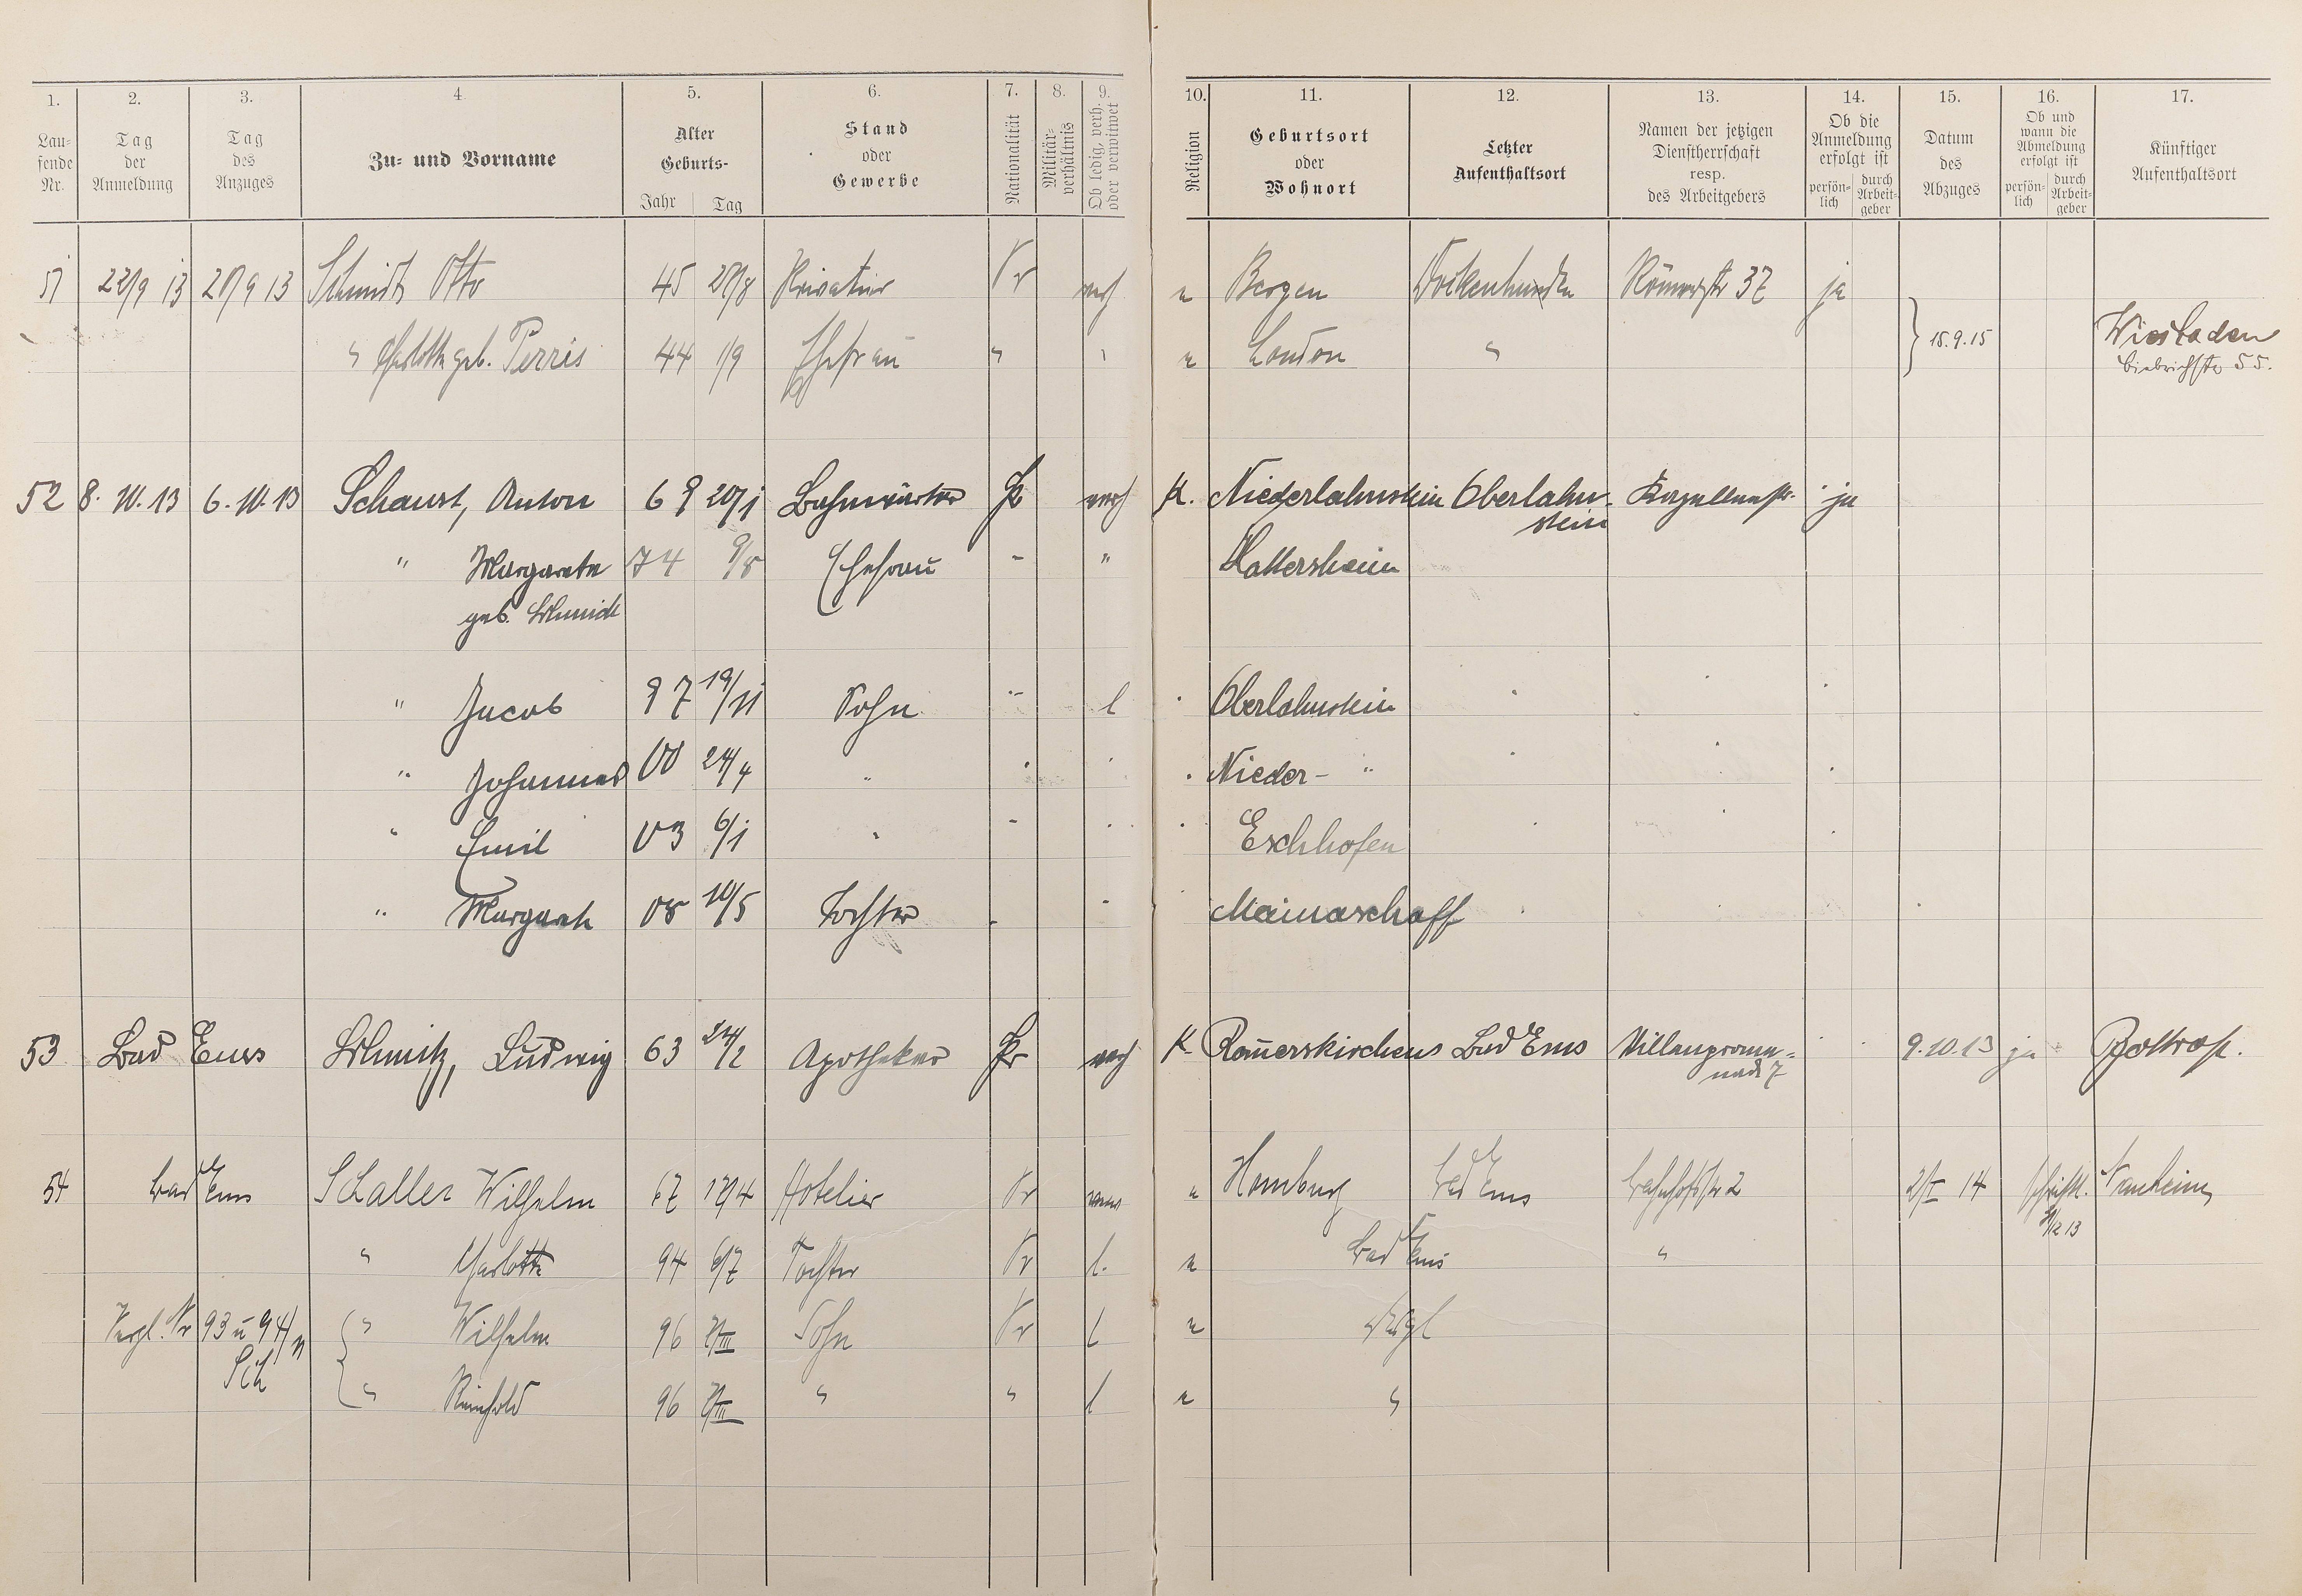 1. 2. 3. 4. 5. 6. 7. 8. 9. 10. 11. 12. 13. 14. 15. 16. 17.
Lau-
fende
Nr.
Tag
der
Anmeldung
Tag
des
Anzuges
Zu- und Vorname
Alter
Geburts-
Jahr Tag
Stand
oder
Gewerbe
Nationalität
Militär-
verhältnis
Ob ledig, verh.
oder verwitwet
Religion
Geburtsort
oder
Wohnort
Letzter
Aufenthaltsort
Namen der jetzigen
Dienstherrschaft
resp.
des Arbeitgebers
Ob die
Anmeldung
erfolgt ist
persön-
lich
durch
Arbeit-
geber
Datum
des
Abzuges
Ob und
wann die
Abmeldung
erfolgt ist
persön-
lich
durch
Arbeit-
geber
Künftiger
Aufenthaltsort
51 22/9 13 9 13 Schmidt Otto 45 Privatier Pr verh Bergen Dockenhuden Römerstr 37 ja
" Charlotte geb. Perris 44 1/9 Ehefrau " " London " 15.9.15 Wiesbaden
Biebrichstr 55.
52 8. 10. 13 6. 10. 13 Schaust, Anton 69 20/1 Bahnwärter Pr verh K. Niederlahnstein Oberlahn-
stein ja
" Margarete 74 9/8 Ehefrau - " Hattersheim
geb. Schmidt
" Jacob 97 19/11 Sohn " l Oberlahnstein
" Johannes 00 24/4 " Nieder- "
" Emil 03 6/1 " Eschhofen
" Margareth 08 10/5 Tochter Mainaschaff
53 Bad Ems Schmitz, Ludwig 63 24/2 Apotheker Pr verh K. Rommerskirchens Bad Ems Villenprome-
nade 7 9.10.13 ja Bottrop.
54 Bad Ems Schaller Wilhelm 67 12/4 Hotelier Pr Homburg Bad Ems Bahnhofstr 2 2/I 14 schriftl. Nauheim
12 13
" Charlotte 94 6/7 Tochter Pr l. Bad Ems "
Vergl. Nr 93 u 94/ " Wilhelm 96 Sohn Pr l dsgl
Sch
" Reinhold 96 " " l "